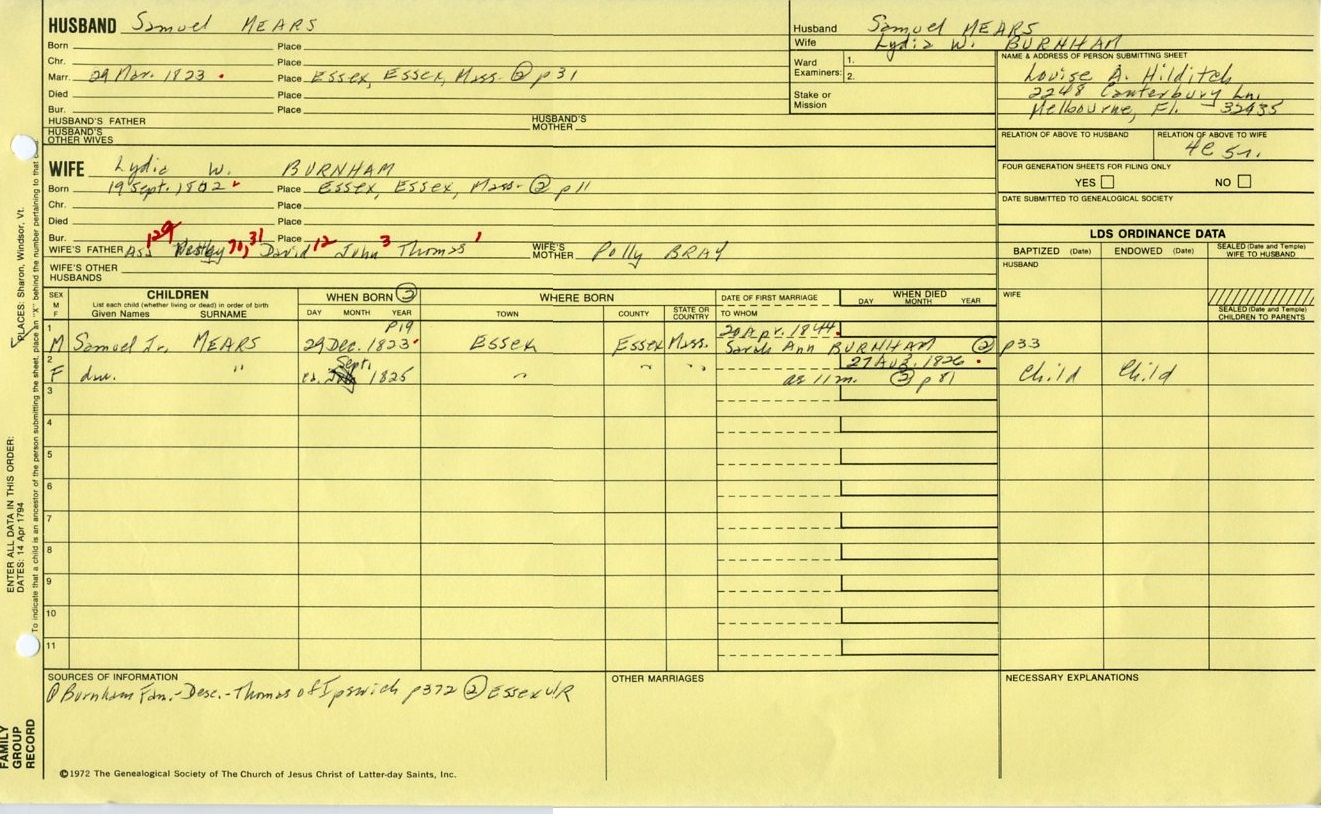 HUSBAND Samuel MEARS
Born Place
Chr. Place
Marr. 29 Mar. 1823 . Place Essex, Essex, Mass. ② p31
Died Place
Bur. Place
HUSBAND'S FATHER HUSBAND'S MOTHER
HUSBAND'S OTHER WIVES
Husband Samuel MEARS
Wife Lydia W. BURNHAM
Ward Examiners: 1.
2.
Stake or Mission
NAME & ADDRESS OF PERSON SUBMITTING SHEET
Louise A. Hilditch
2248 Canterbury Ln.
Melbourne, Fl. 32935
RELATION OF ABOVE TO HUSBAND RELATION OF ABOVE TO WIFE
4C 5r.
FOUR GENERATION SHEETS FOR FILING ONLY
YES NO
DATE SUBMITTED TO GENEALOGICAL SOCIETY
WIFE Lydia W. BURNHAM
Born 19 Sept. 1802 Place Essex, Essex, Mass. ② p11
Chr. Place
Died Place
Bur. Place
129 71, 31 12 3 1
WIFE'S FATHER Asa Wesley David John Thomas WIFE'S MOTHER Polly BRAY
WIFE'S OTHER HUSBANDS
LDS ORDINANCE DATA
BAPTIZED (Date) ENDOWED (Date) SEALED (Date and Temple) WIFE TO HUSBAND
HUSBAND
WIFE
SEALED (Date and Temple) CHILDREN TO PARENTS
SEX M F
CHILDREN
List each child (whether living or dead) in order of birth
Given Names SURNAME
WHEN BORN ②
DAY MONTH YEAR
WHERE BORN
TOWN COUNTY STATE OR COUNTRY
DATE OF FIRST MARRIAGE
TO WHOM
WHEN DIED
DAY MONTH YEAR
1 p19 20 Apr. 1844
M Samuel Jr. MEARS 29 Dec. 1823 Essex Essex Mass. Sarah Ann BURNHAM ② p33
2 Sept. 27 Aug. 1826
F dau. " ca. 1825 " " " ae 11 m. ② p81 Child Child
3
4
5
6
7
8
9
10
11
SOURCES OF INFORMATION
① Burnham Fam.-Desc.-Thomas of Ipswich p372 ② Essex V/R
OTHER MARRIAGES
NECESSARY EXPLANATIONS
©1972 The Genealogical Society of The Church of Jesus Christ of Latter-day Saints, Inc.
FAMILY GROUP RECORD
ENTER ALL DATA IN THIS ORDER:
DATES: 14 Apr 1794
PLACES: Sharon, Windsor, Vt.
To indicate that a child is an ancestor of the person submitting the sheet, place an "X" behind the number pertaining to that